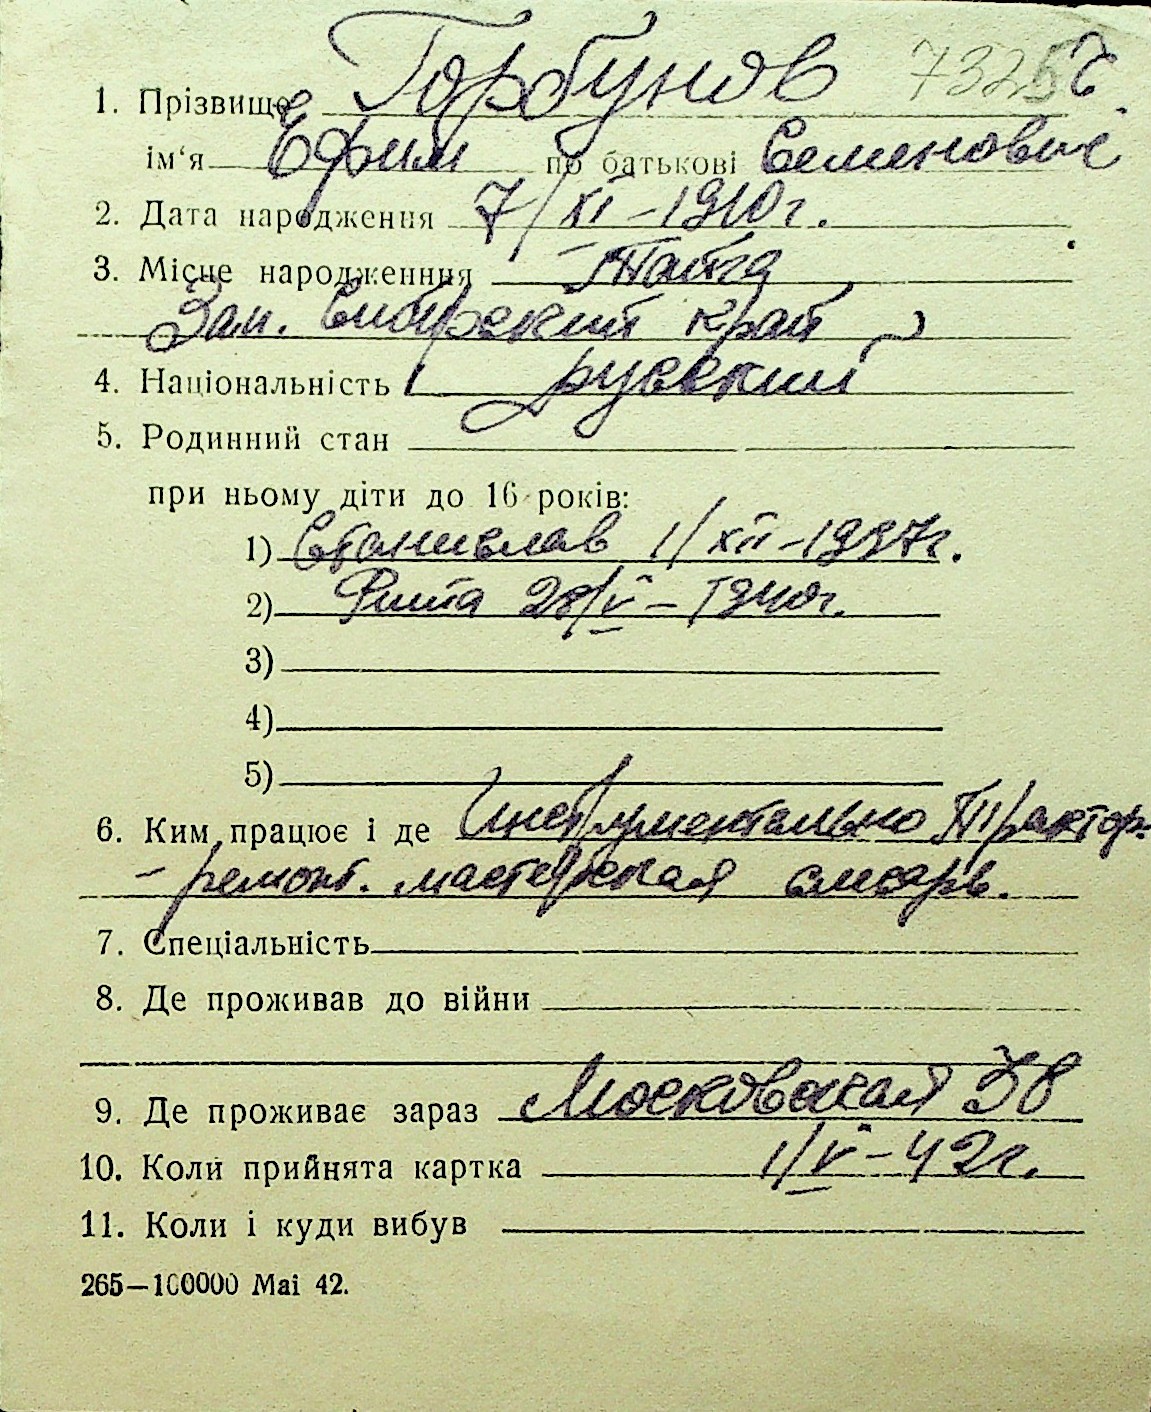 1. Прізвище Горбунов 7325 б.
ім‘я Ефим по батькові Семенович
2. Дата народження 7/XI – 1910 г.
3. Місце народженння Тайга
Зап. Сибирский край
4. Національність русский
5. Родинний стан
при ньому діти до 16 років:
1) Станислав 1/XII – 1937 г.
2) Рита 28/V – 1940 г.
3)
4)
5)
6. Ким працює і де Инструментально Трактор.
– ремонт. мастерская слесарь.
7. Спеціальність
8. Де проживав до війни
9. Де проживає зараз Московская 38
10. Коли прийнята картка 1/V – 42 г.
11. Коли і куди вибув
265—100000 Mai 42.